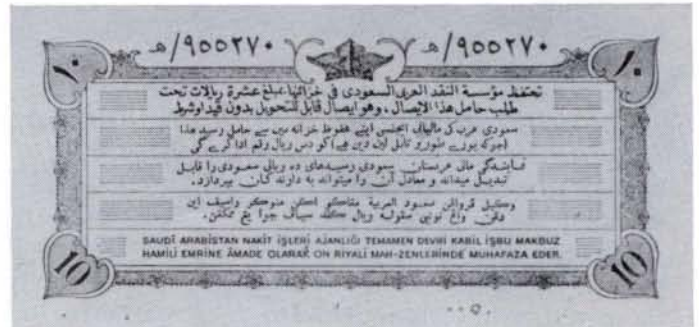 ٩٥٥٢٧٠/ﻫ ٩٥٥٢٧٠/ﻫ
١٠ ١٠
تحتفظ مؤسسة النقد العربى السعودى فى خزائنها بمبلغ عشرة ريالات تحت
طلب حامل هذا الايصال، وهو ايصال قابل للتحويل بدون قيد اوشرط
سعودى عرب كى مالياتى ايجنسى اپنے محفوظ خزانه میں سے حامل رسيد هذا
(جوكه پورے طور پر قابل لين دين هے) كو دس ريال رقم ادا كرے گى
نمايندگى مالى عربستان سعودى رسيدهاى ده ريالى سعودى را قابل
تبديل ميداند و معادل آن را ميتواند به دارنده آن بپردازد.
وكيل قروا‌ڠن سعود العربية
SAUDÎ ARABİSTAN NAKİT İŞLERİ AJANLIĞI TEMAMEN DEVRİ KABİL İŞBU MAKBUZ
HAMİLİ EMRİNE ÂMADE OLARAK ON RİYALİ MAH-ZENLERİNDE MUHAFAZA EDER.
10 10